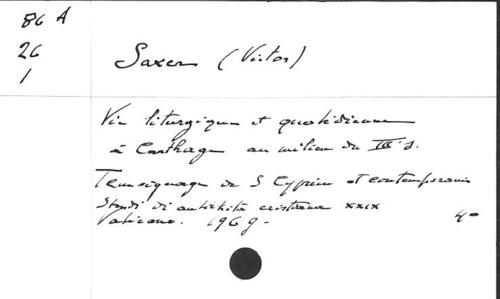 86 A
26
1
Saxer (Victor)
Vie liturgique et quotidienne
à Carthage au milieu du IIIe s.
Temoignage de S Cyprien et contemporains
Studi di antichità cristiana XXIX
Vaticano. 1969.
4°